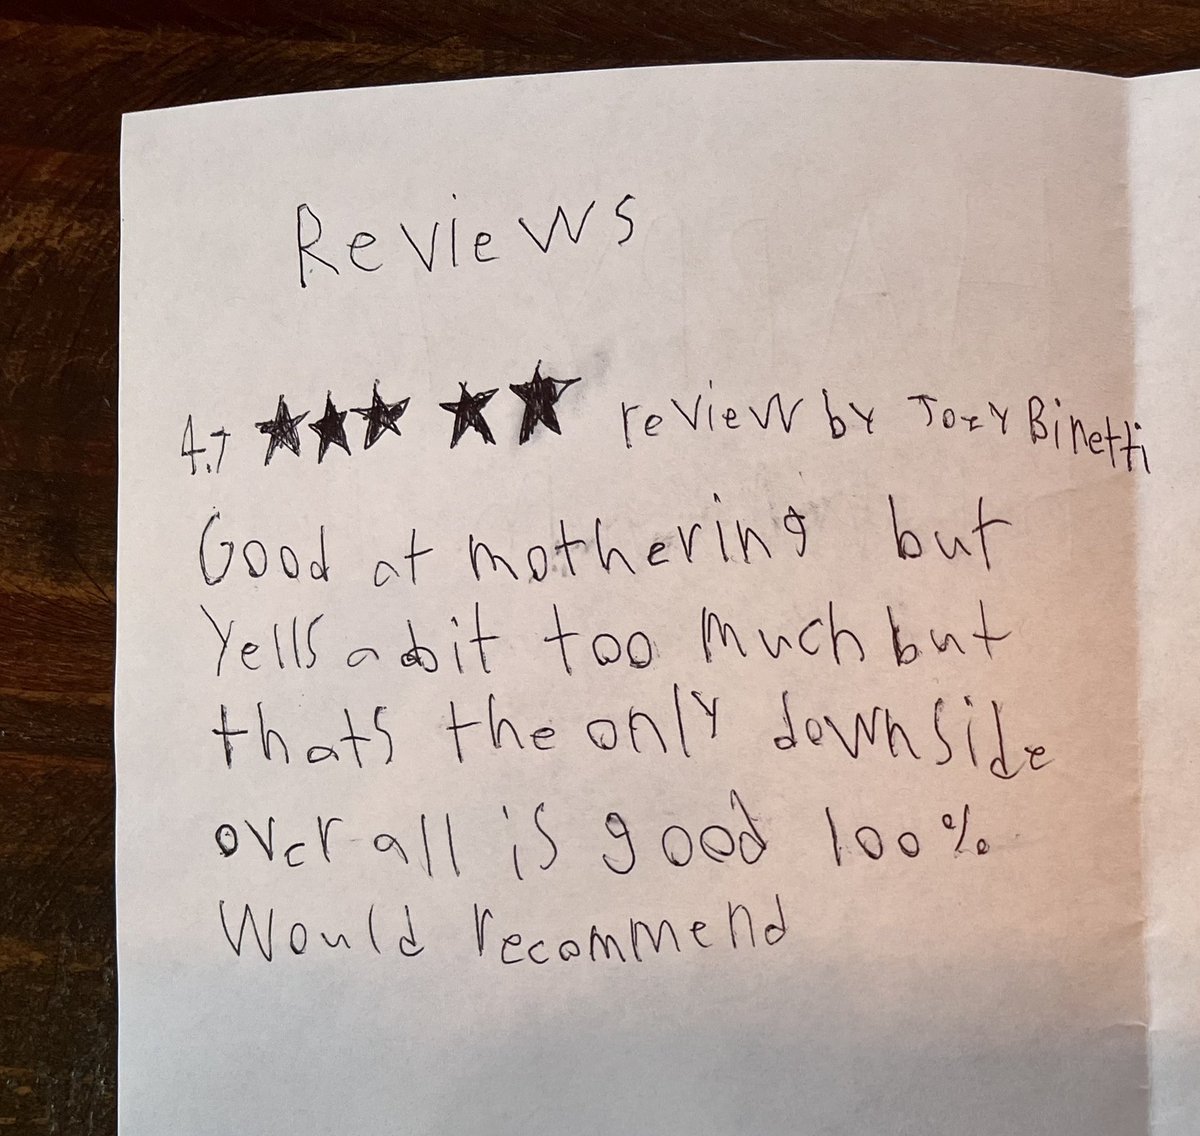 Reviews
4.7 ★★★★★ review by Joey Binetti
Good at mothering but
Yells a bit too much but
thats the only downside
over all is good 100%
Would recommend